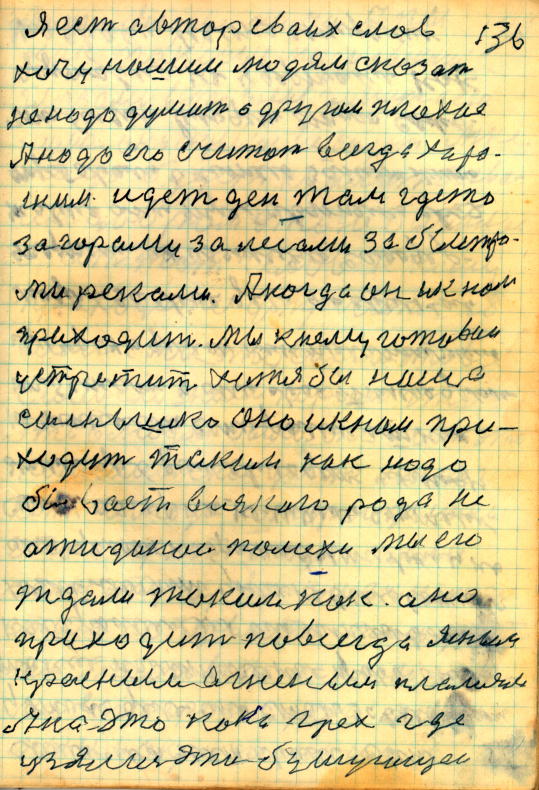 Я ест автор сваих слов 136
хочу нашим людям сказат
не надо думат о другом плохае
А надо его считат всегда харо-
шим. идет ден там где то
за горами за лесами за быстры-
ми реками. А когда он и к нам
приходит. мы к нему готовы
устретит хотя бы наша
солнышко оно и к нам при-
ходит таким как надо
бывает всякого рода не
ожиданои помехи мы его
ждали таким как. ано
приходит повсегда ясным
красным огненым пламям
А на это пока грех где
узялис эти